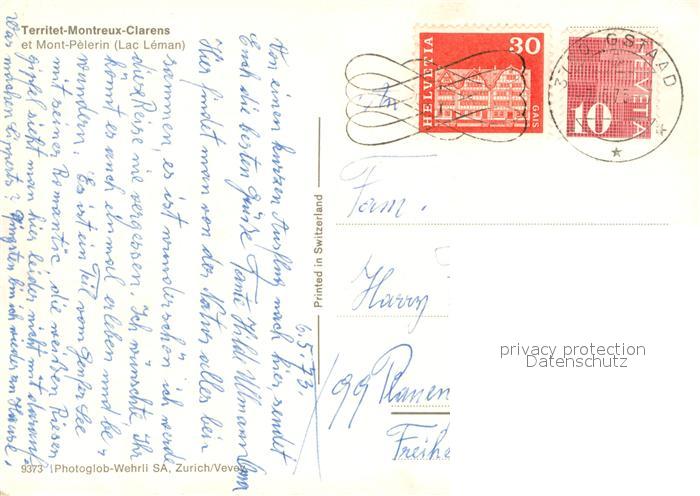 Territet-Montreux-Clarens
et Mont-Pèlerin (Lac Léman)
6.5.73.
Von einem kurzen Ausflug nach hier sendet
Euch die besten Grüße Tante Hild Ullmann
Hier findet man von der Natur alles bei-
sammen, es ist wunderschön ich werde
die Reise nie vergessen. Ich wünschte, Ihr
könnt es auch einmal erleben und be-
wundern. Es ist ein Teil vom Genfer See
mit seiner Romantic die weißen Riesen
gipfel sieht man hier leider nicht mit darauf
Was machen Eure Pfingsten bin ich wieder zu Hause.
9373 Photoglob-Wehrli SA, Zurich/Vevey
Printed in Switzerland
HELVETIA
30
GAIS
HELVETIA
10
GSTAAD
Fam.
Harry
99 Plauen
Freihe
privacy protection
Datenschutz